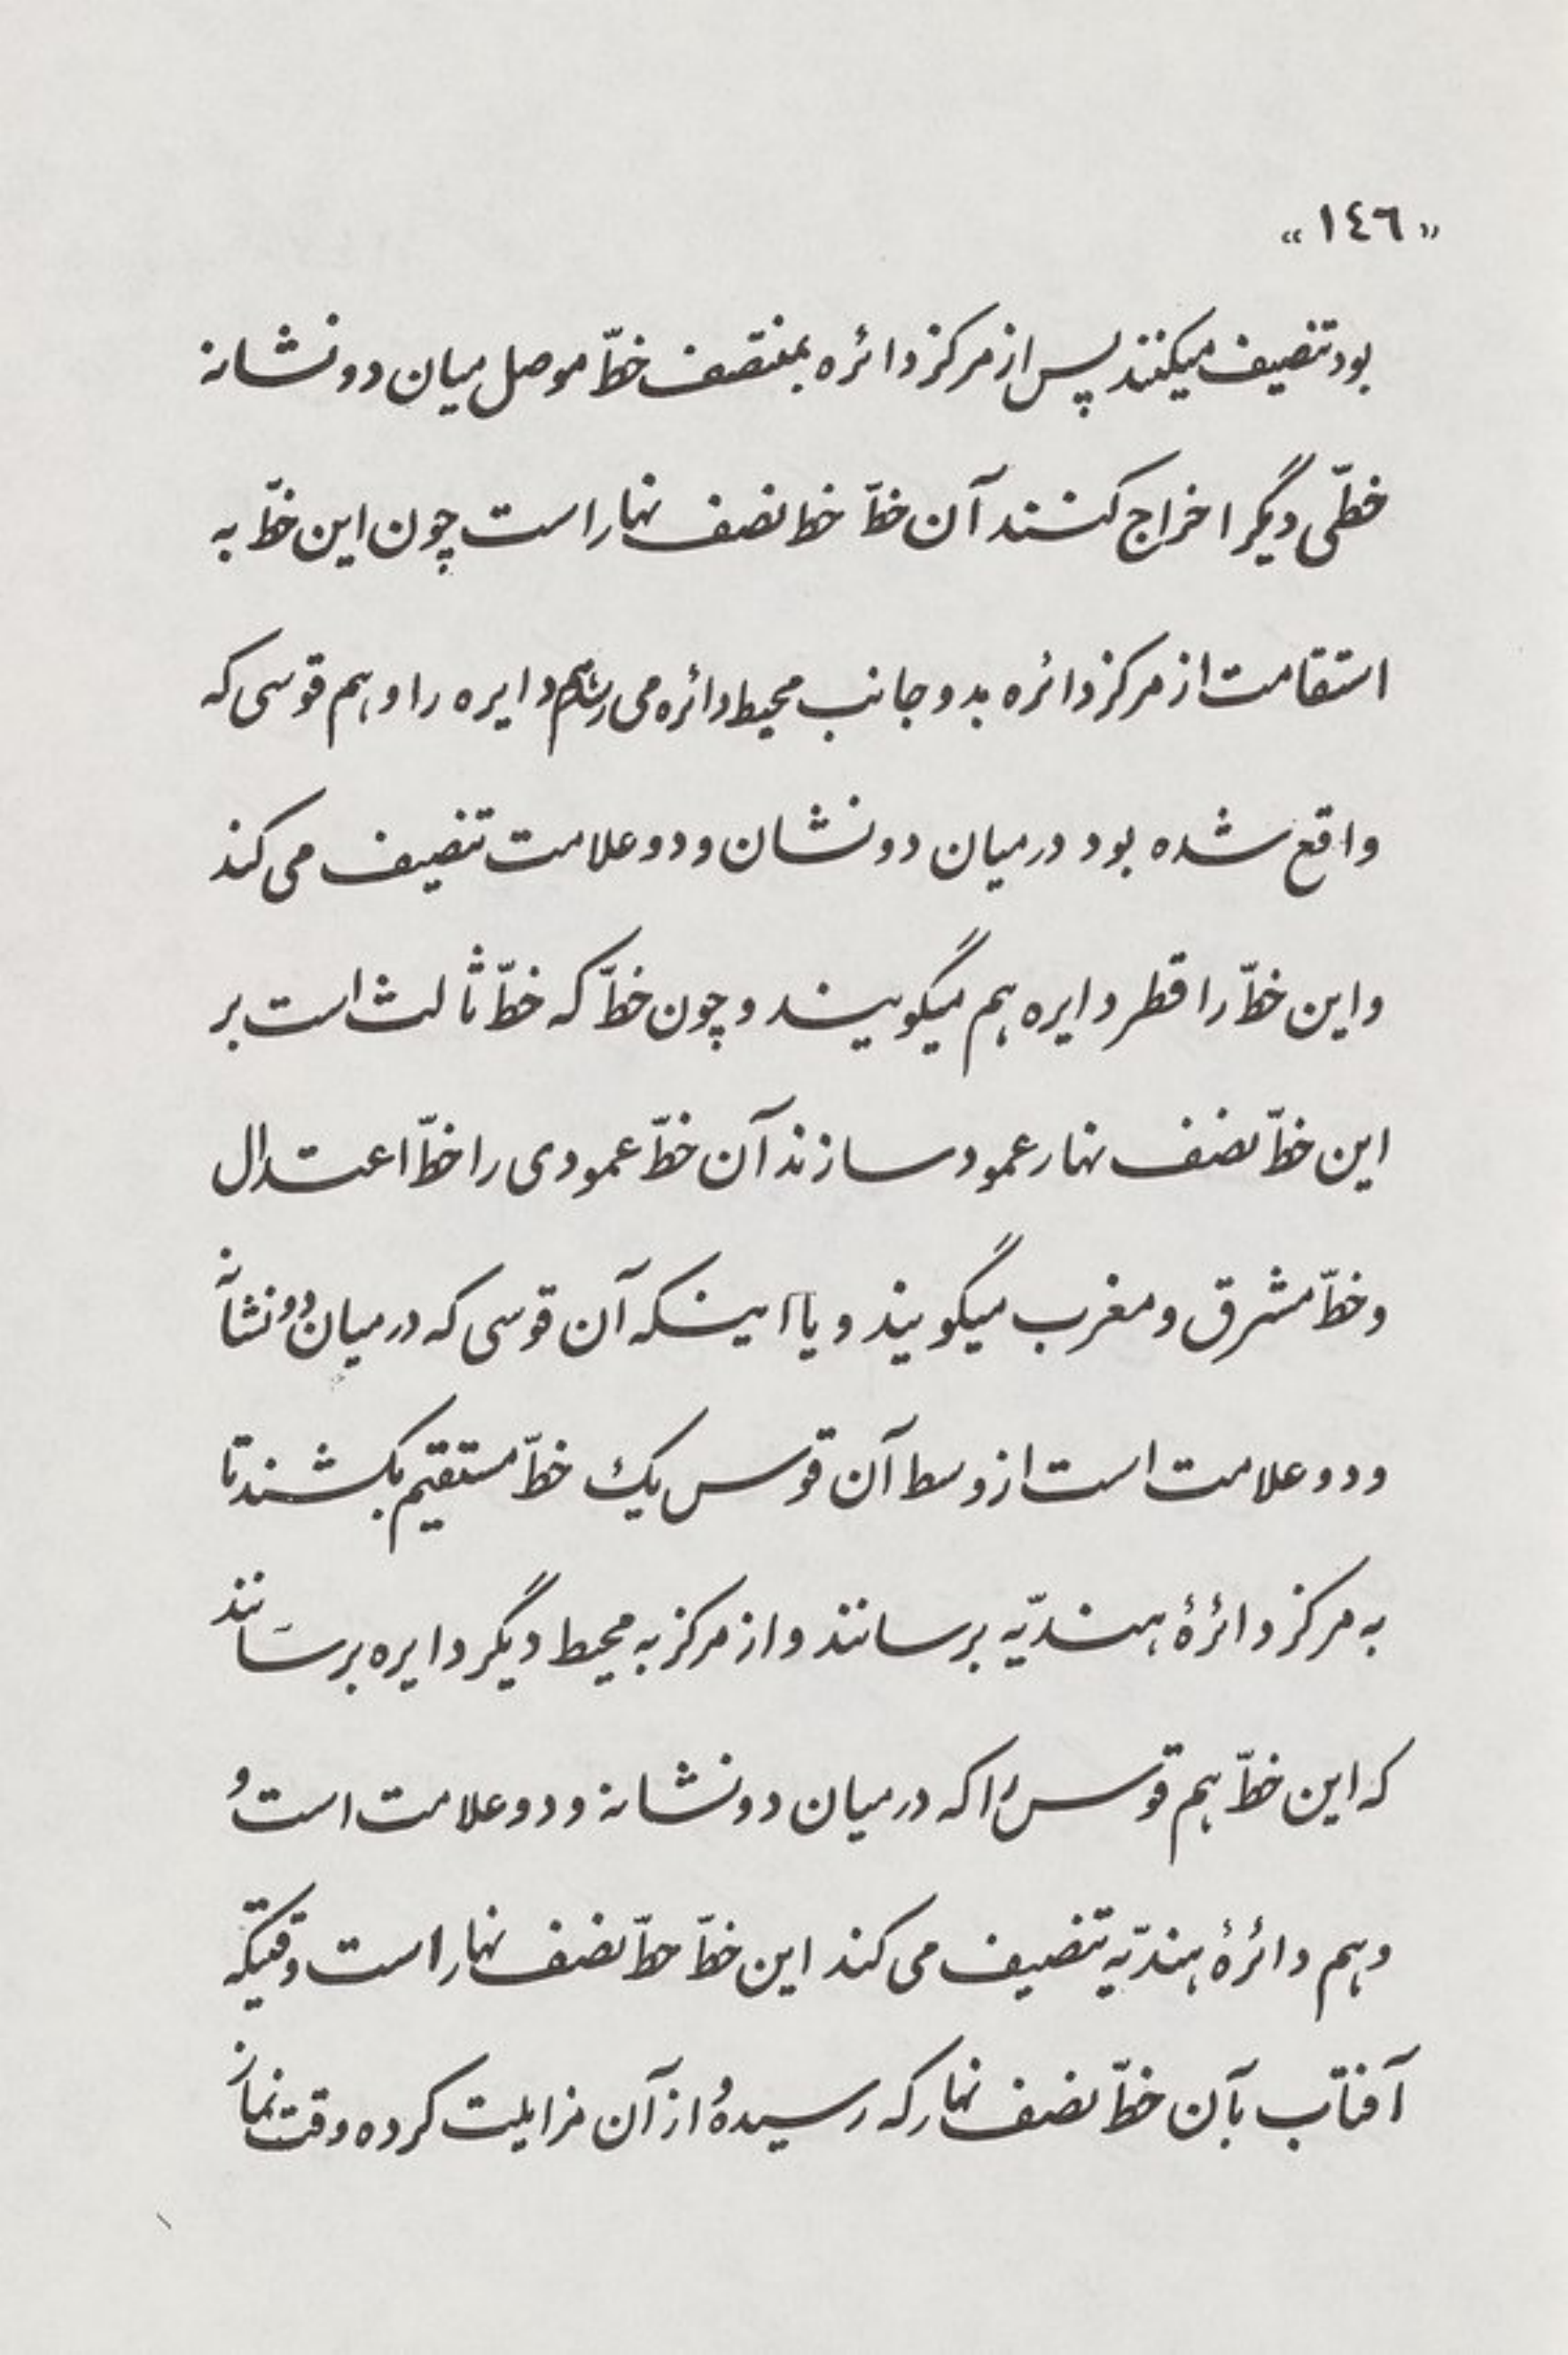 «١٤٦»
بود تنصیف میکنند پس از مرکز دائره بمنتصف خطّ موصل میان دو نشانه
خطّی دیگر اخراج کنند آن خطّ خط نصف نهار است چون این خطّ به
استقامت از مرکز دائره بدو جانب محیط دائره می رسد هم دایره را و هم قوسی که
واقع شده بود در میان دو نشان و دو علامت تنصیف می کند
و این خطّ را قطر دایره هم میگویند و چون خطّ که خطّ ثالث است بر
این خطّ نصف نهار عمود سازند آن خطّ عمودی را خطّ اعتدال
و خطّ مشرق و مغرب میگویند و یا اینکه آن قوسی که در میان دو نشانه
و دو علامت است از وسط آن قوس یک خطّ مستقیم بکشند تا
به مرکز دائرهٔ هندیّه برسانند و از مرکز به محیط دیگر دایره برسانند
که این خطّ هم قوس را که در میان دو نشانه و دو علامت است و
و هم دائرهٔ هندیّه تنصیف می کند این خطّ خطّ نصف نهار است وقتیکه
آفتاب بآن خطّ نصف نهار که رسیده و از آن مزایلت کرده وقت نماز